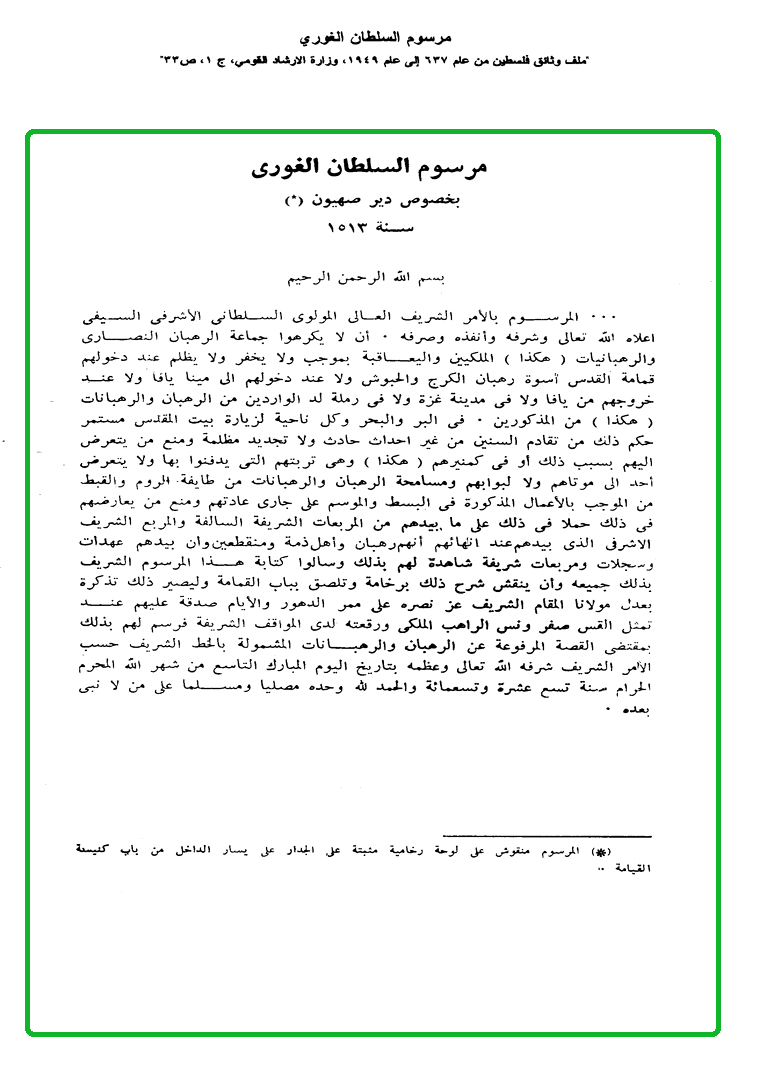 مرسوم السلطان الغوري
"ملف وثائق فلسطين من عام ٦٣٧ إلى عام ١٩٤٩، وزارة الارشاد القومي، ج ١، ص٣٣"
مرسوم السلطان الغورى
بخصوص دير صهيون (*)
سـنة ١٥١٣
بسم الله الرحمن الرحيم
٠٠٠ المرســـوم بالأمر الشريف العـالى المولوى السـلطانى الأشرفى السـيفى
اعلاه الله تعالى وشرفه وأنفذه وصرفه ٠ أن لا يكرهوا جماعة الرهبان النصـارى
والرهبانيات ( هكذا ) الملكيين واليعـاقبة بموجب ولا يخفر ولا يظلم عند دخولهم
قمامة القدس أسوة رهبان الكرج والحبوش ولا عند دخولهم الى مينا يافا ولا عنـد
خروجهم من يافا ولا فى مدينة غزة ولا فى رملة لد الواردين من الرهبان والرهبانات
( هكذا ) من المذكورين ٠ فى البر والبحر وكل ناحية لزيارة بيت المقدس مستمر
حكم ذلك من تقادم السنين من غير احداث حادث ولا تجديد مظلمة ومنع من يتعرض
اليهم بسبب ذلك أو فى كمنيرهم ( هكذا ) وهى تربتهم التى يدفنوا بها ولا يتعرض
أحد الى موتاهم ولا لبوابهم ومسامحة الرهبان والرهبانات من طايفة الروم والقبط
من الموجب بالأعمال المذكورة فى البسط والموسم على جارى عادتهم ومنع من يعارضهم
فى ذلك حملا فى ذلك على ما بيدهم من المربعات الشريفة السالفة والمربع الشريف
الاشرفى الذى بيدهم عند انهائهم أنهم رهبان وأهل ذمة ومنقطعين وان بيدهم عهدات
وسجلات ومربعات شريفة شاهدة لهم بذلك وسالوا كتابة هـذا المرسوم الشريف
بذلك جميعه وأن ينقش شرح ذلك برخامة وتلصق بباب القمامة وليصير ذلك تذكرة
بعدل مولانا المقام الشريف عز نصره على ممر الدهور والأيام صدقة عليهم عنـد
تمثل القس صفر ونس الراهب الملكى ورقعته لدى المواقف الشريفة فرسم لهم بذلك
بمقتضى القصة المرفوعة عن الرهبان والرهبـانات المشمولة بالخط الشريف حسب
الأمر الشريف شرفه الله تعالى وعظمه بتاريخ اليوم المبارك التاسع من شهر الله المحرم
الحرام سنة تسع عشرة وتسعمائة والحمد لله وحده مصليا ومسـلما على من لا نبى
بعده ٠
(*) المرسوم منقوش على لوحة رخامية مثبتة على الجدار على يسار الداخل من باب كنيسة
القيامة ٠٠